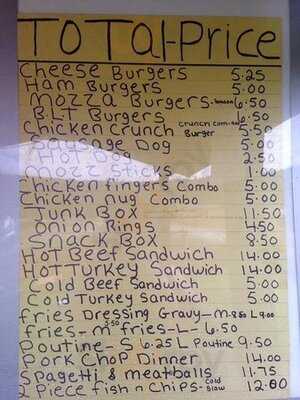 TOTal-Price
Cheese Burgers 5.25
Ham Burgers 5.00
Mozza Burgers- 6.50
BLT Burgers 6.50
Chicken Crunch Burger 5.50
Sausage Dog 5.00
Hot Dog 2.50
Mozz Sticks 1.00
Chicken fingers Combo 5.00
Chicken nug Combo 5.00
Junk Box 11.50
Onion Rings 4.50
Snack Box 8.50
Hot Beef Sandwich 14.00
Hot Turkey Sandwich 14.00
Cold Beef Sandwich 5.00
Cold Turkey Sandwich 5.00
fries Dressing Gravy-M-8.50 L 9.00
fries-M 5.50 fries-L- 6.50
Poutine-S 6.25 L Poutine 9.50
Pork Chop Dinner 14.00
Spagetti & meatballs 11.75
2 Piece fish n Chips-Cold Slaw 12.00